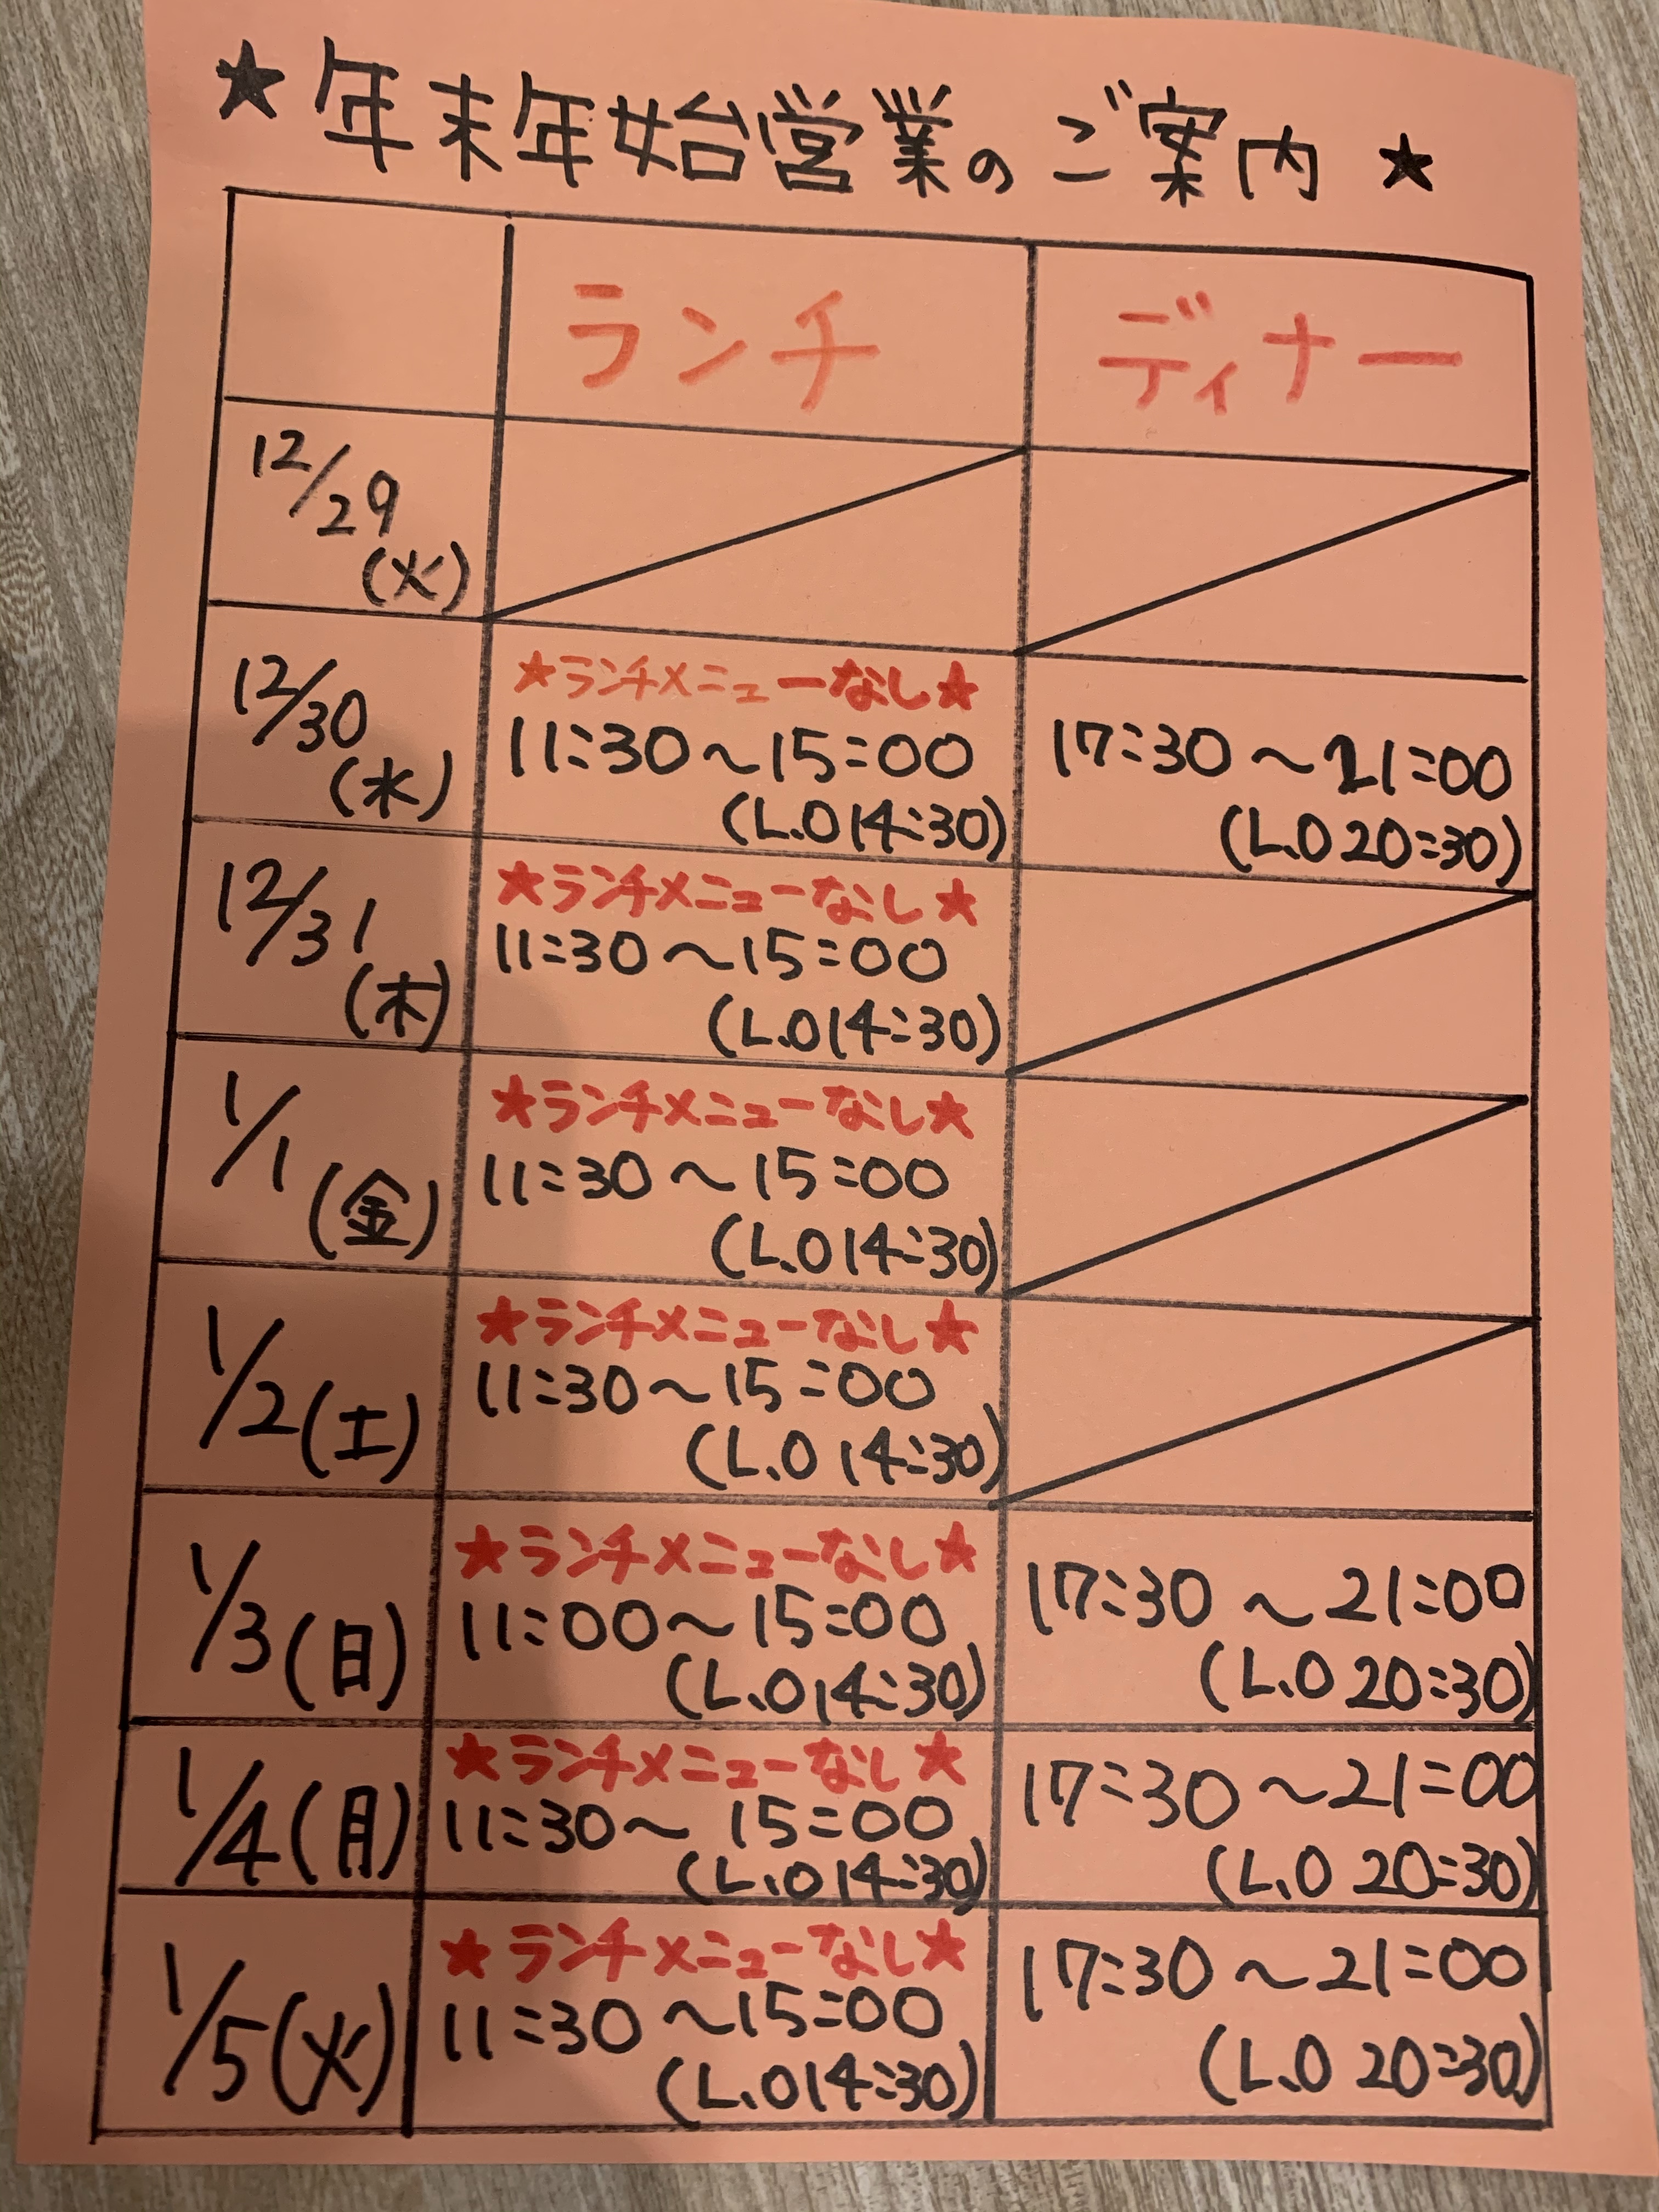 ★年末年始営業のご案内★
ランチ ディナー
12/29
(火)
12/30
(水)
★ランチメニューなし★
11:30～15:00
(L.O 14:30)
17:30～21:00
(L.O 20:30)
12/31
(木)
★ランチメニューなし★
11:30～15:00
(L.O 14:30)
1/1
(金)
★ランチメニューなし★
11:30～15:00
(L.O 14:30)
1/2(土)
★ランチメニューなし★
11:30～15:00
(L.O 14:30)
1/3(日)
★ランチメニューなし★
11:00～15:00
(L.O 14:30)
17:30～21:00
(L.O 20:30)
1/4(月)
★ランチメニューなし★
11:30～15:00
(L.O 14:30)
17:30～21:00
(L.O 20:30)
1/5(火)
★ランチメニューなし★
11:30～15:00
(L.O 14:30)
17:30～21:00
(L.O 20:30)